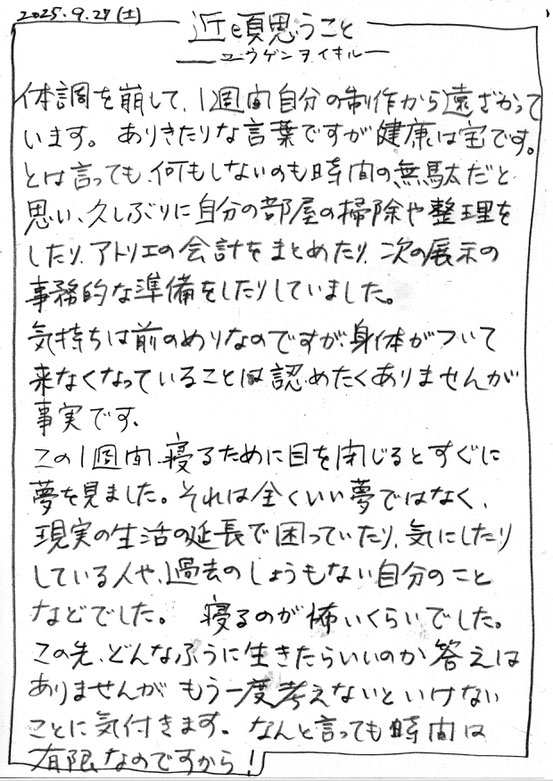 2025.9.27(土)
近頃思うこと
ユウゲンヲイキル
体調を崩して、1週間自分の制作から遠ざかって
います。ありきたりな言葉ですが健康は宝です。
とは言っても、何もしないのも時間の無駄だと
思い、久しぶりに自分の部屋の掃除や整理を
したり、アトリエの会計をまとめたり、次の展示の
事務的な準備をしたりしていました。
気持ちは前のめりなのですが、身体がついて
来なくなっていることは認めたくありませんが
事実です。
この1週間、寝るために目を閉じるとすぐに
夢を見ました。それは全くいい夢ではなく、
現実の生活の延長で困っていたり、気にしたり
している人や、過去のしょうもない自分のこと
などでした。 寝るのが怖いくらいでした。
この先、どんなふうに生きたらいいのか答えは
ありませんが もう一度考えないといけない
ことに気付きます。なんと言っても時間は
有限なのですから!